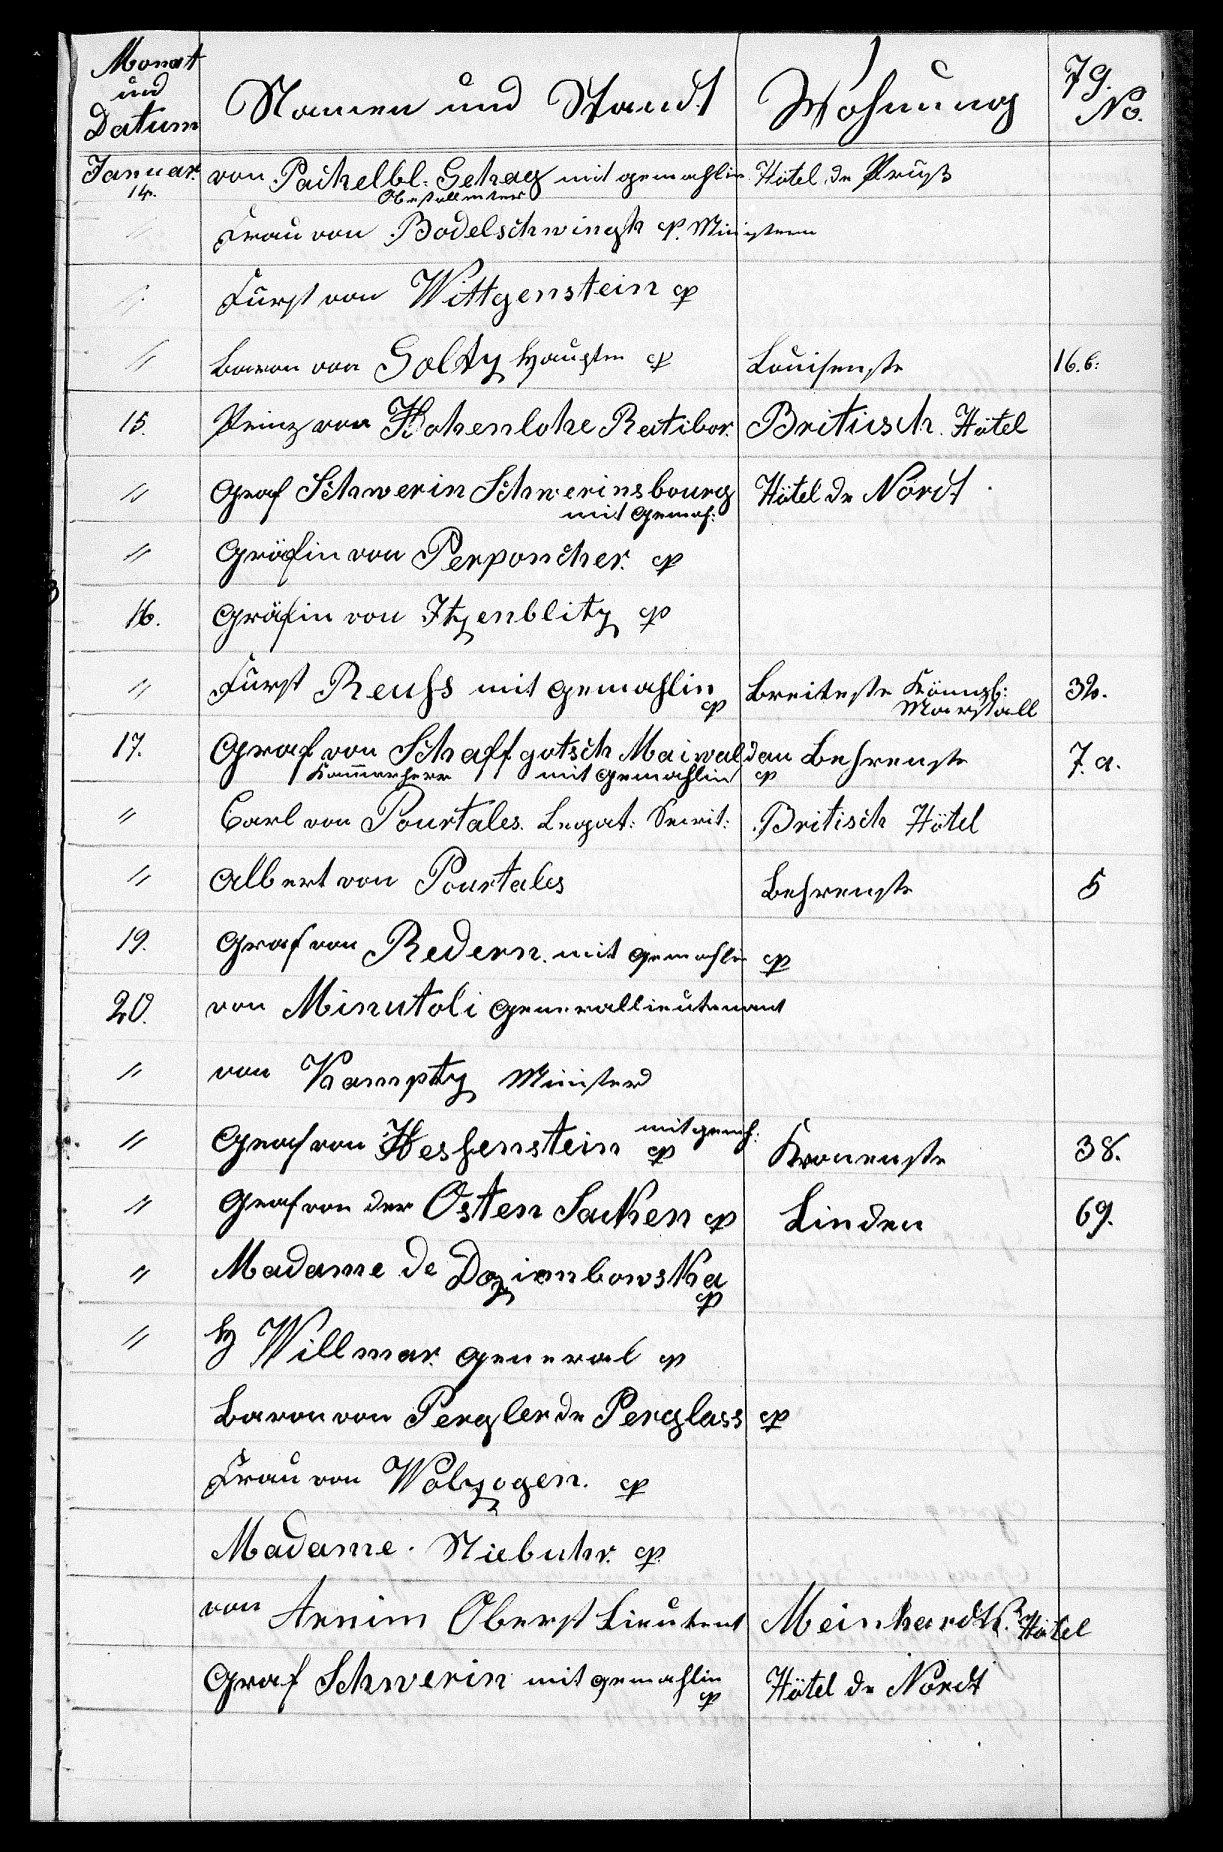 Monat und Datum Namen und Standt Wohnung 79. No.
Januar 14. von Pachelbl. Gehag mit gemahlin Hôtel de Pruß
" Frau von Bodelschwingh cp. Ministern
" Fürst von Wittgenstein cp
" Baron von Goltz Hauptm cp Louisenste 16. b:
15. Prinz von Hohenlohe Ratibor. Britiisch. Hôtel
" Graf Schwerin Schwerinsbourg Hôtel de Nordt
mit Gemah:
" Gräfin von Perponcher. cp
16. Gräfin von Itzenblitz cp
" Fürst Reuſs mit Gemahlin cp Breiteste Königl: Marstall 32.
17. Graf von Schaffgotsch Maiwaldau Behrenste 7. a.
Kam̄erherr mit Gemahlin cp
" Carl von Pourtales. Legat: Secrit: Britisch Hôtel
" Albert von Pourtales Behrenste 5
19. Graf von Redern. mit Gemahlin cp
20. von Minutoli Generallieutenant
" von Kamptz Ministerd
" Graf von Heſsenstein mit gemh: cp Kronenste 38.
" Graf von der Osten Sacken cp Linden 69.
" Madame de Dozimbowska cp
" H Willmar. General cp
Baron von Pergler de Perglass cp
Frau von Wolzogen. cp
Madame. Niebuhr. cp.
von Arnim Oberst Lieutent Meinhardts. Hôtel
Graf Schwerin mit gemahlin cp Hôtel de Nordt